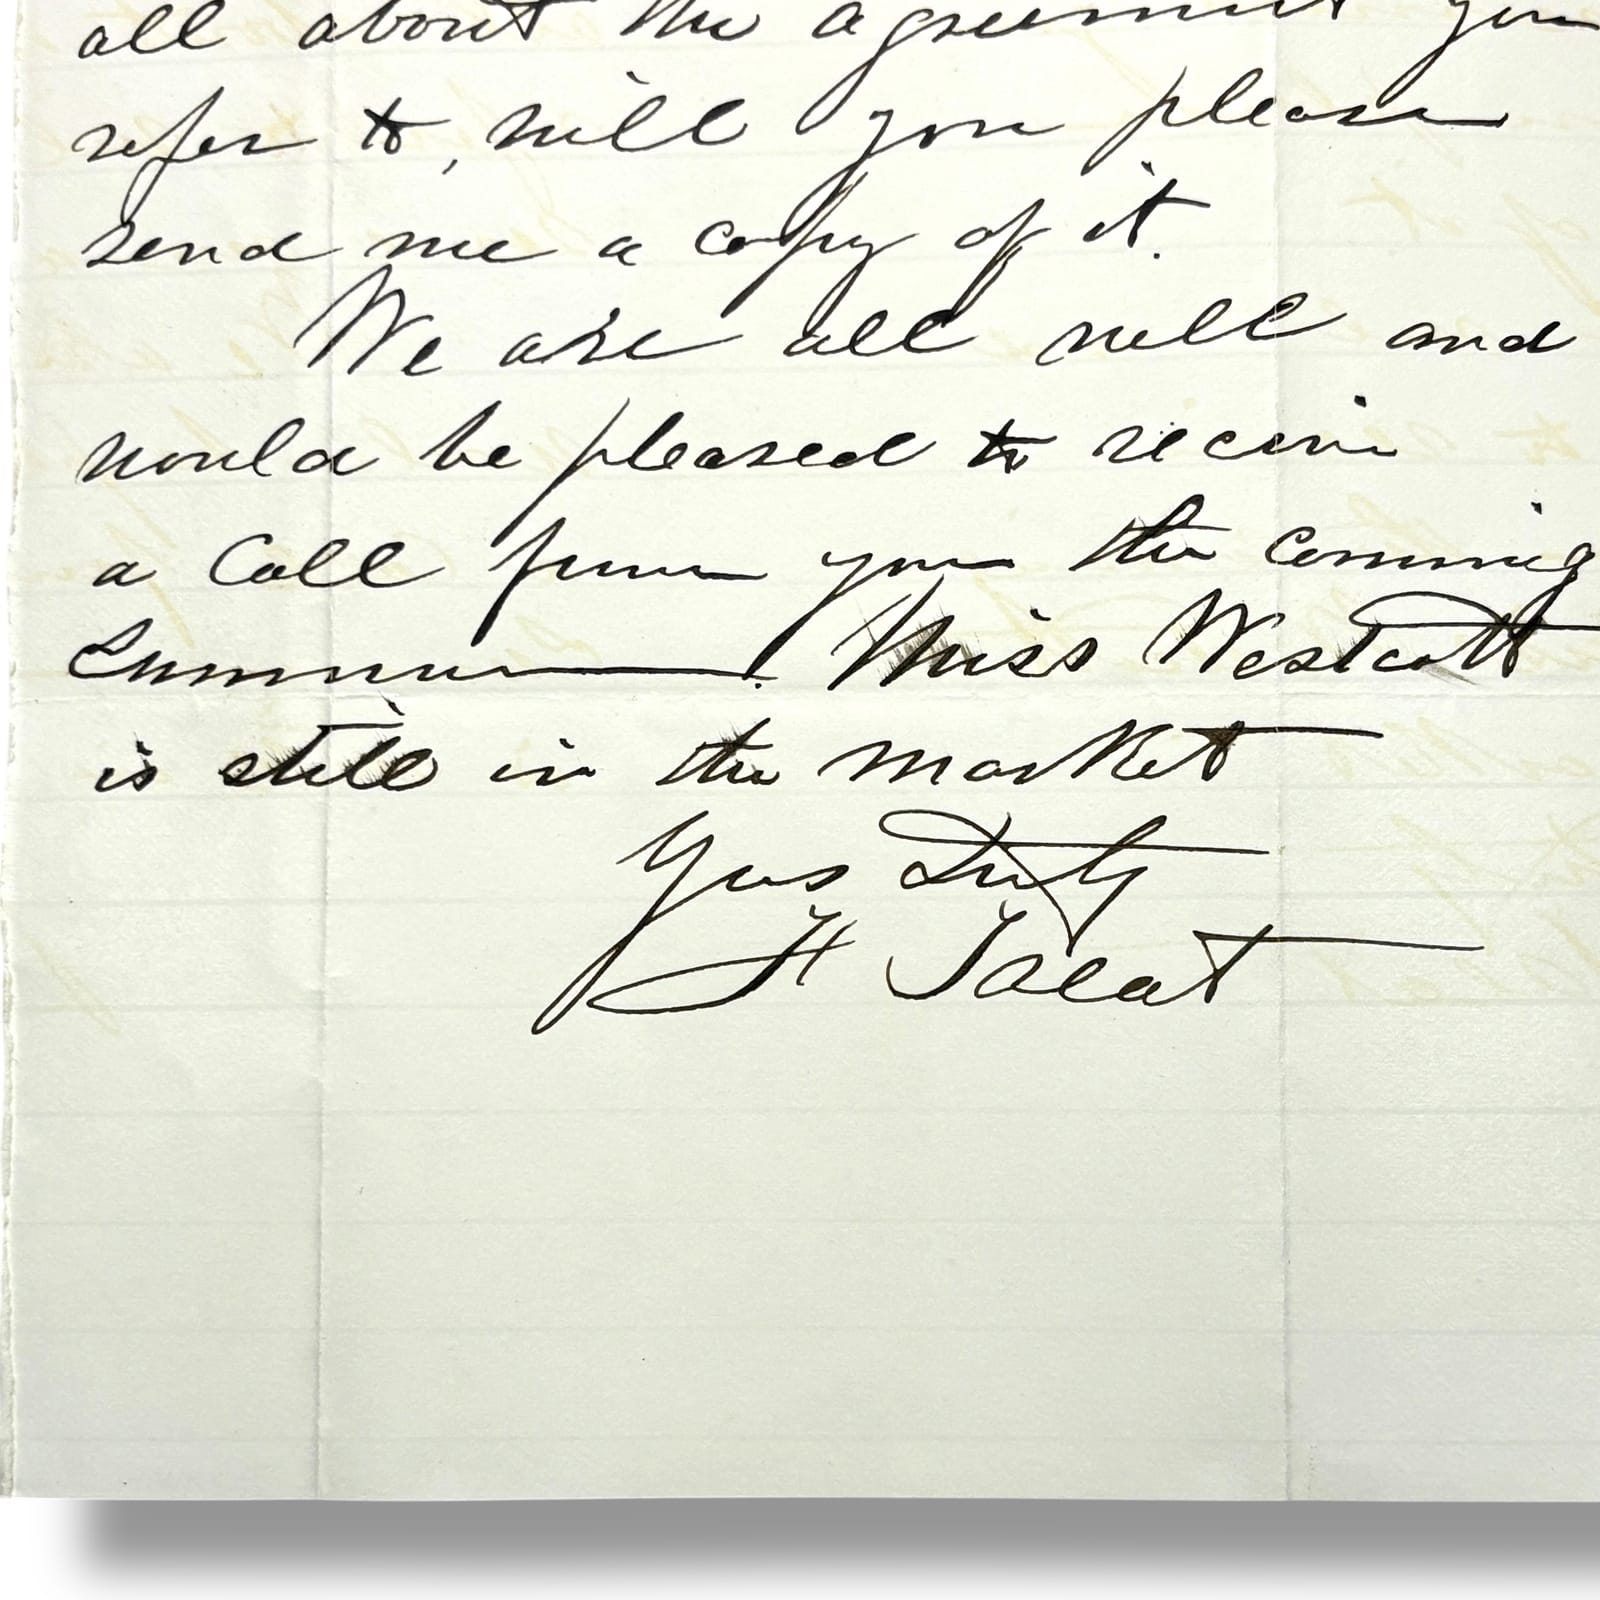 all about the agreement you
refer to, will you please
send me a copy of it.
We are all well and
would be pleased to receive
a Call from you the coming
Summer. Miss Westcott
is still in the market
Yours Truly
H Treat